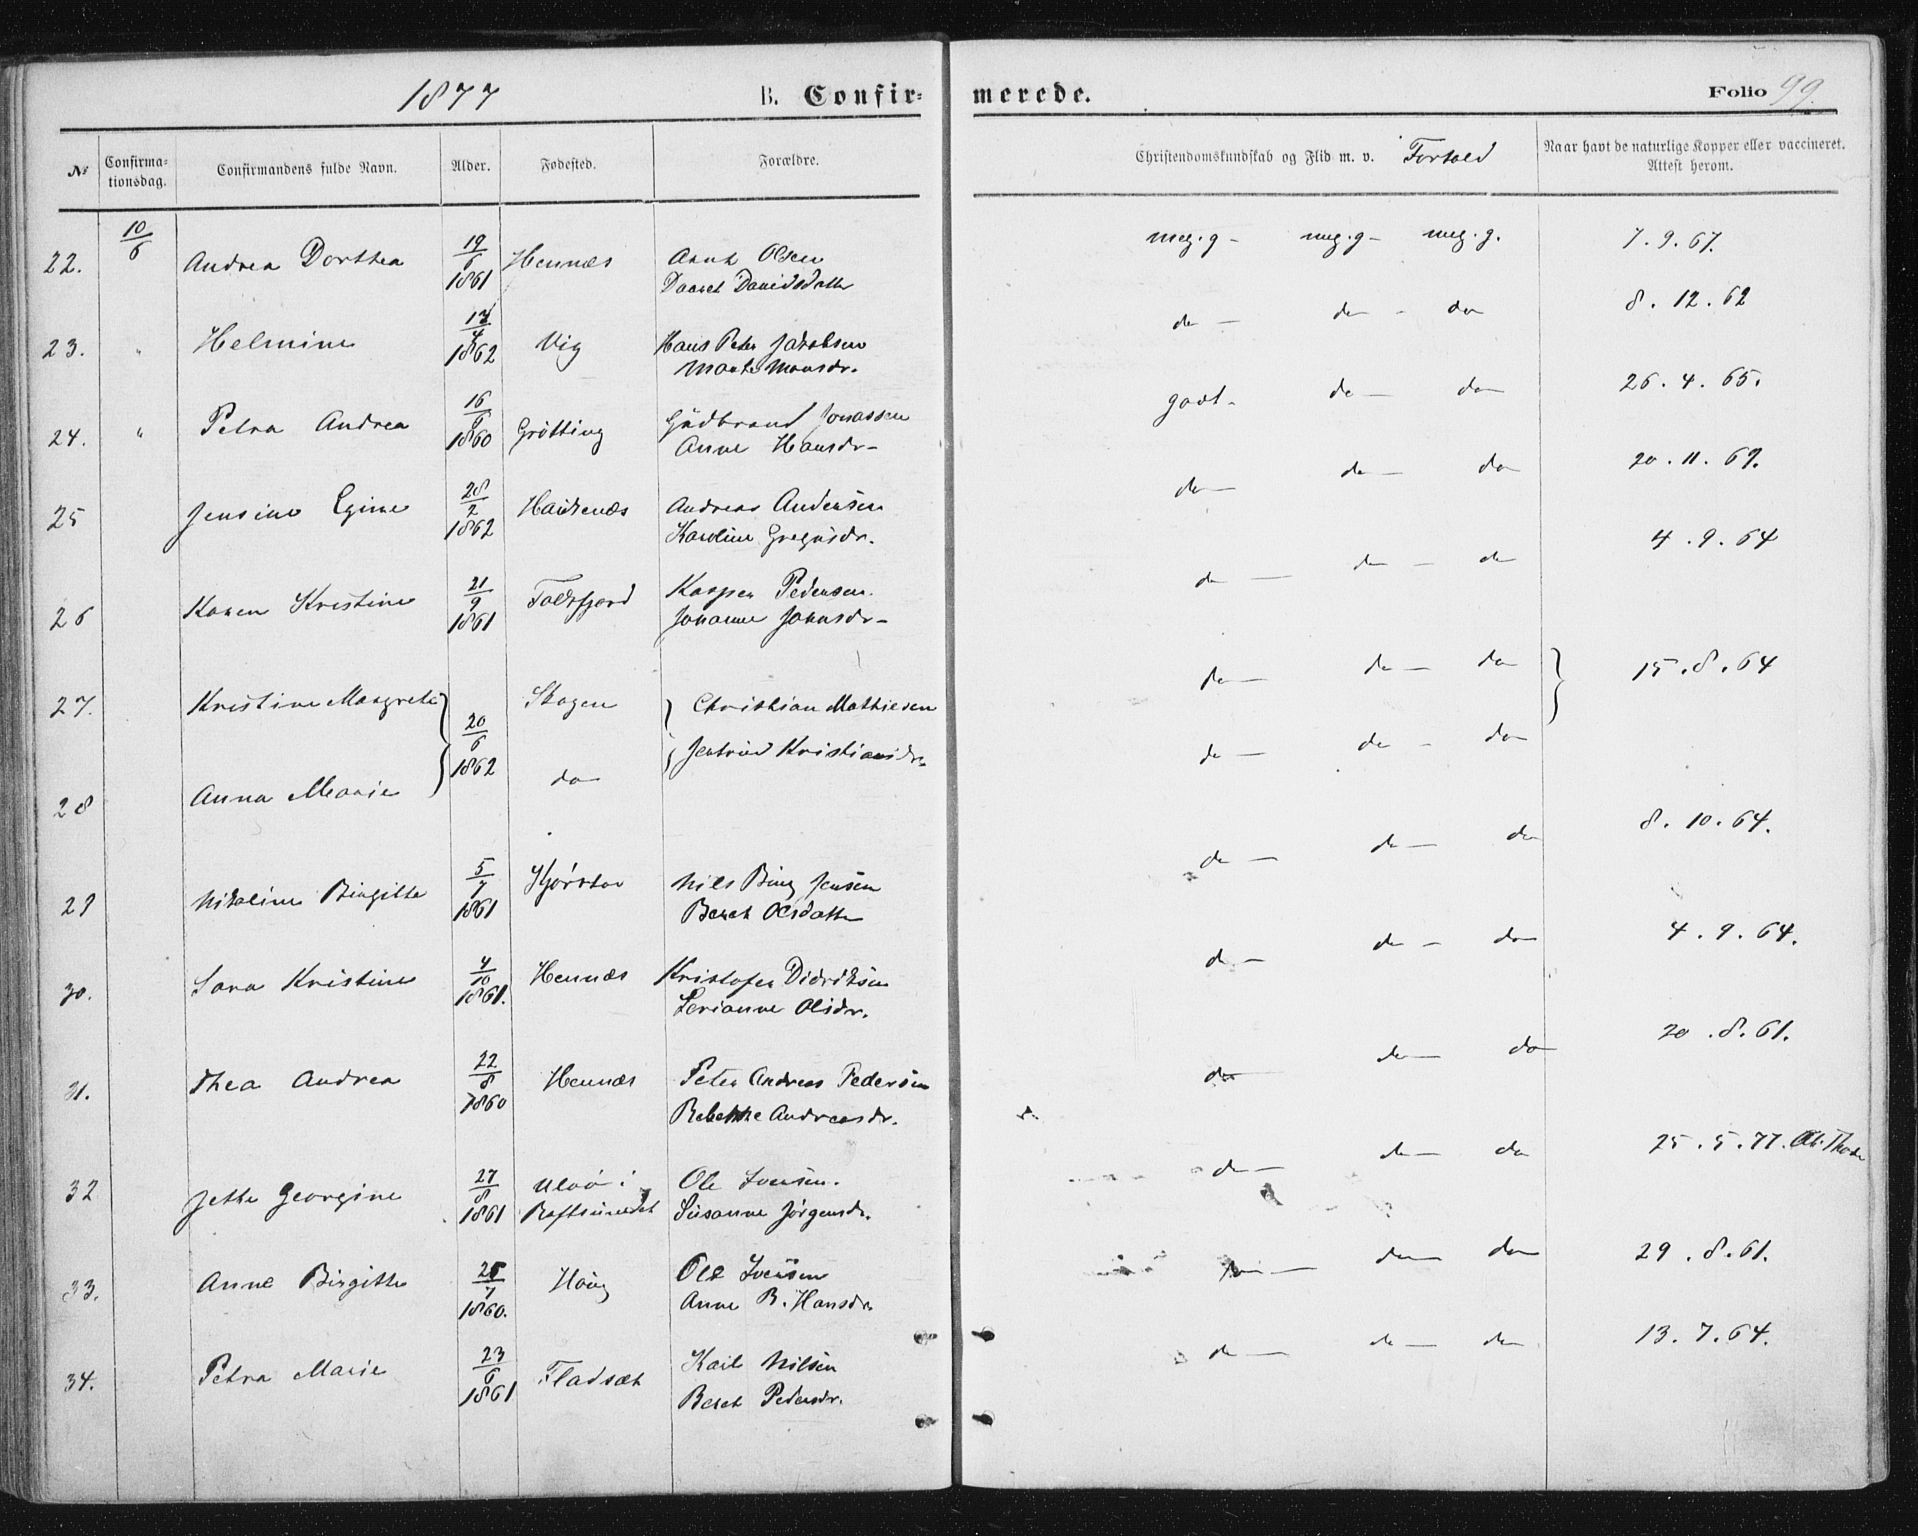 1877 B. Confir= merede. Folio 99.
№ Confirma=tionsdag. Confirmandens fulde Navn. Alder. Fødested. Forældre. Christendomskundskab og Flid m. v. Forhold Naar havt de naturlige Kopper eller vaccineret. Attest herom.
22. 10/6 Andrea Dorthea 19/6 1861 Hennæs Arnt Olsen meg. g - meg. g - meg. g. 7. 9. 67.
Daaret Davidsdatter
23. " Helmine 13/4 1862 Vig Hans Peter Jakobsen do - do - do 8. 12. 62
Marte Monsdr.
24. " Petra Andrea 16/6 1860 Grøtting Gudbrand Jonassen godt - do - do 26. 4. 65.
Anne Hansdr -
25 Jensine Egine 28/2 1862 Haukenæs Andreas Andersen do do - do 20. 11. 67.
Karoline Gregusdr.
26 Karen Kristine 21/9 1861 Foldfjord Kasper Pedersen. do - do - do 4. 9. 64
Johanne Johnsdr -
27. Kristine Margrete } 20/6 1862 Skogen } Christian Mathiesen do do - do } 15. 8. 64
28 Anna Marie do Jentrud Kristiansdr. do - do - do
29 Nikoline Birgitte 5/7 1861 Kjørstad Nils Bing Jensen do - do - do 8. 10. 64.
Beret Olsdatter
30. Sara Kristine 4/10 1861. Hennæs Kristofer Didriksen do - do - do 4. 9. 64.
Serianne Olsdr.
31. Thea Andrea 22/8 1860 Hennæs Peter Andreas Pedersen do do - do 20. 8. 61.
Rebekke Andreasdr.
32 Jette Georgine 27/8 1861 Ulvø i Raftsundet Ole Iversen. do - do - do 25. 5. 77.
Susanne Jørgensdr.
33. Anne Birgitte 25/7 1860. Haug Ole Iversen do - do do 29. 8. 61.
Anne B. Hansdr.
34. Petra Marie 23/6 1861 Fladsæt Karl Nilsen do - do - do 13. 7. 64.
Beret Pedersdr.